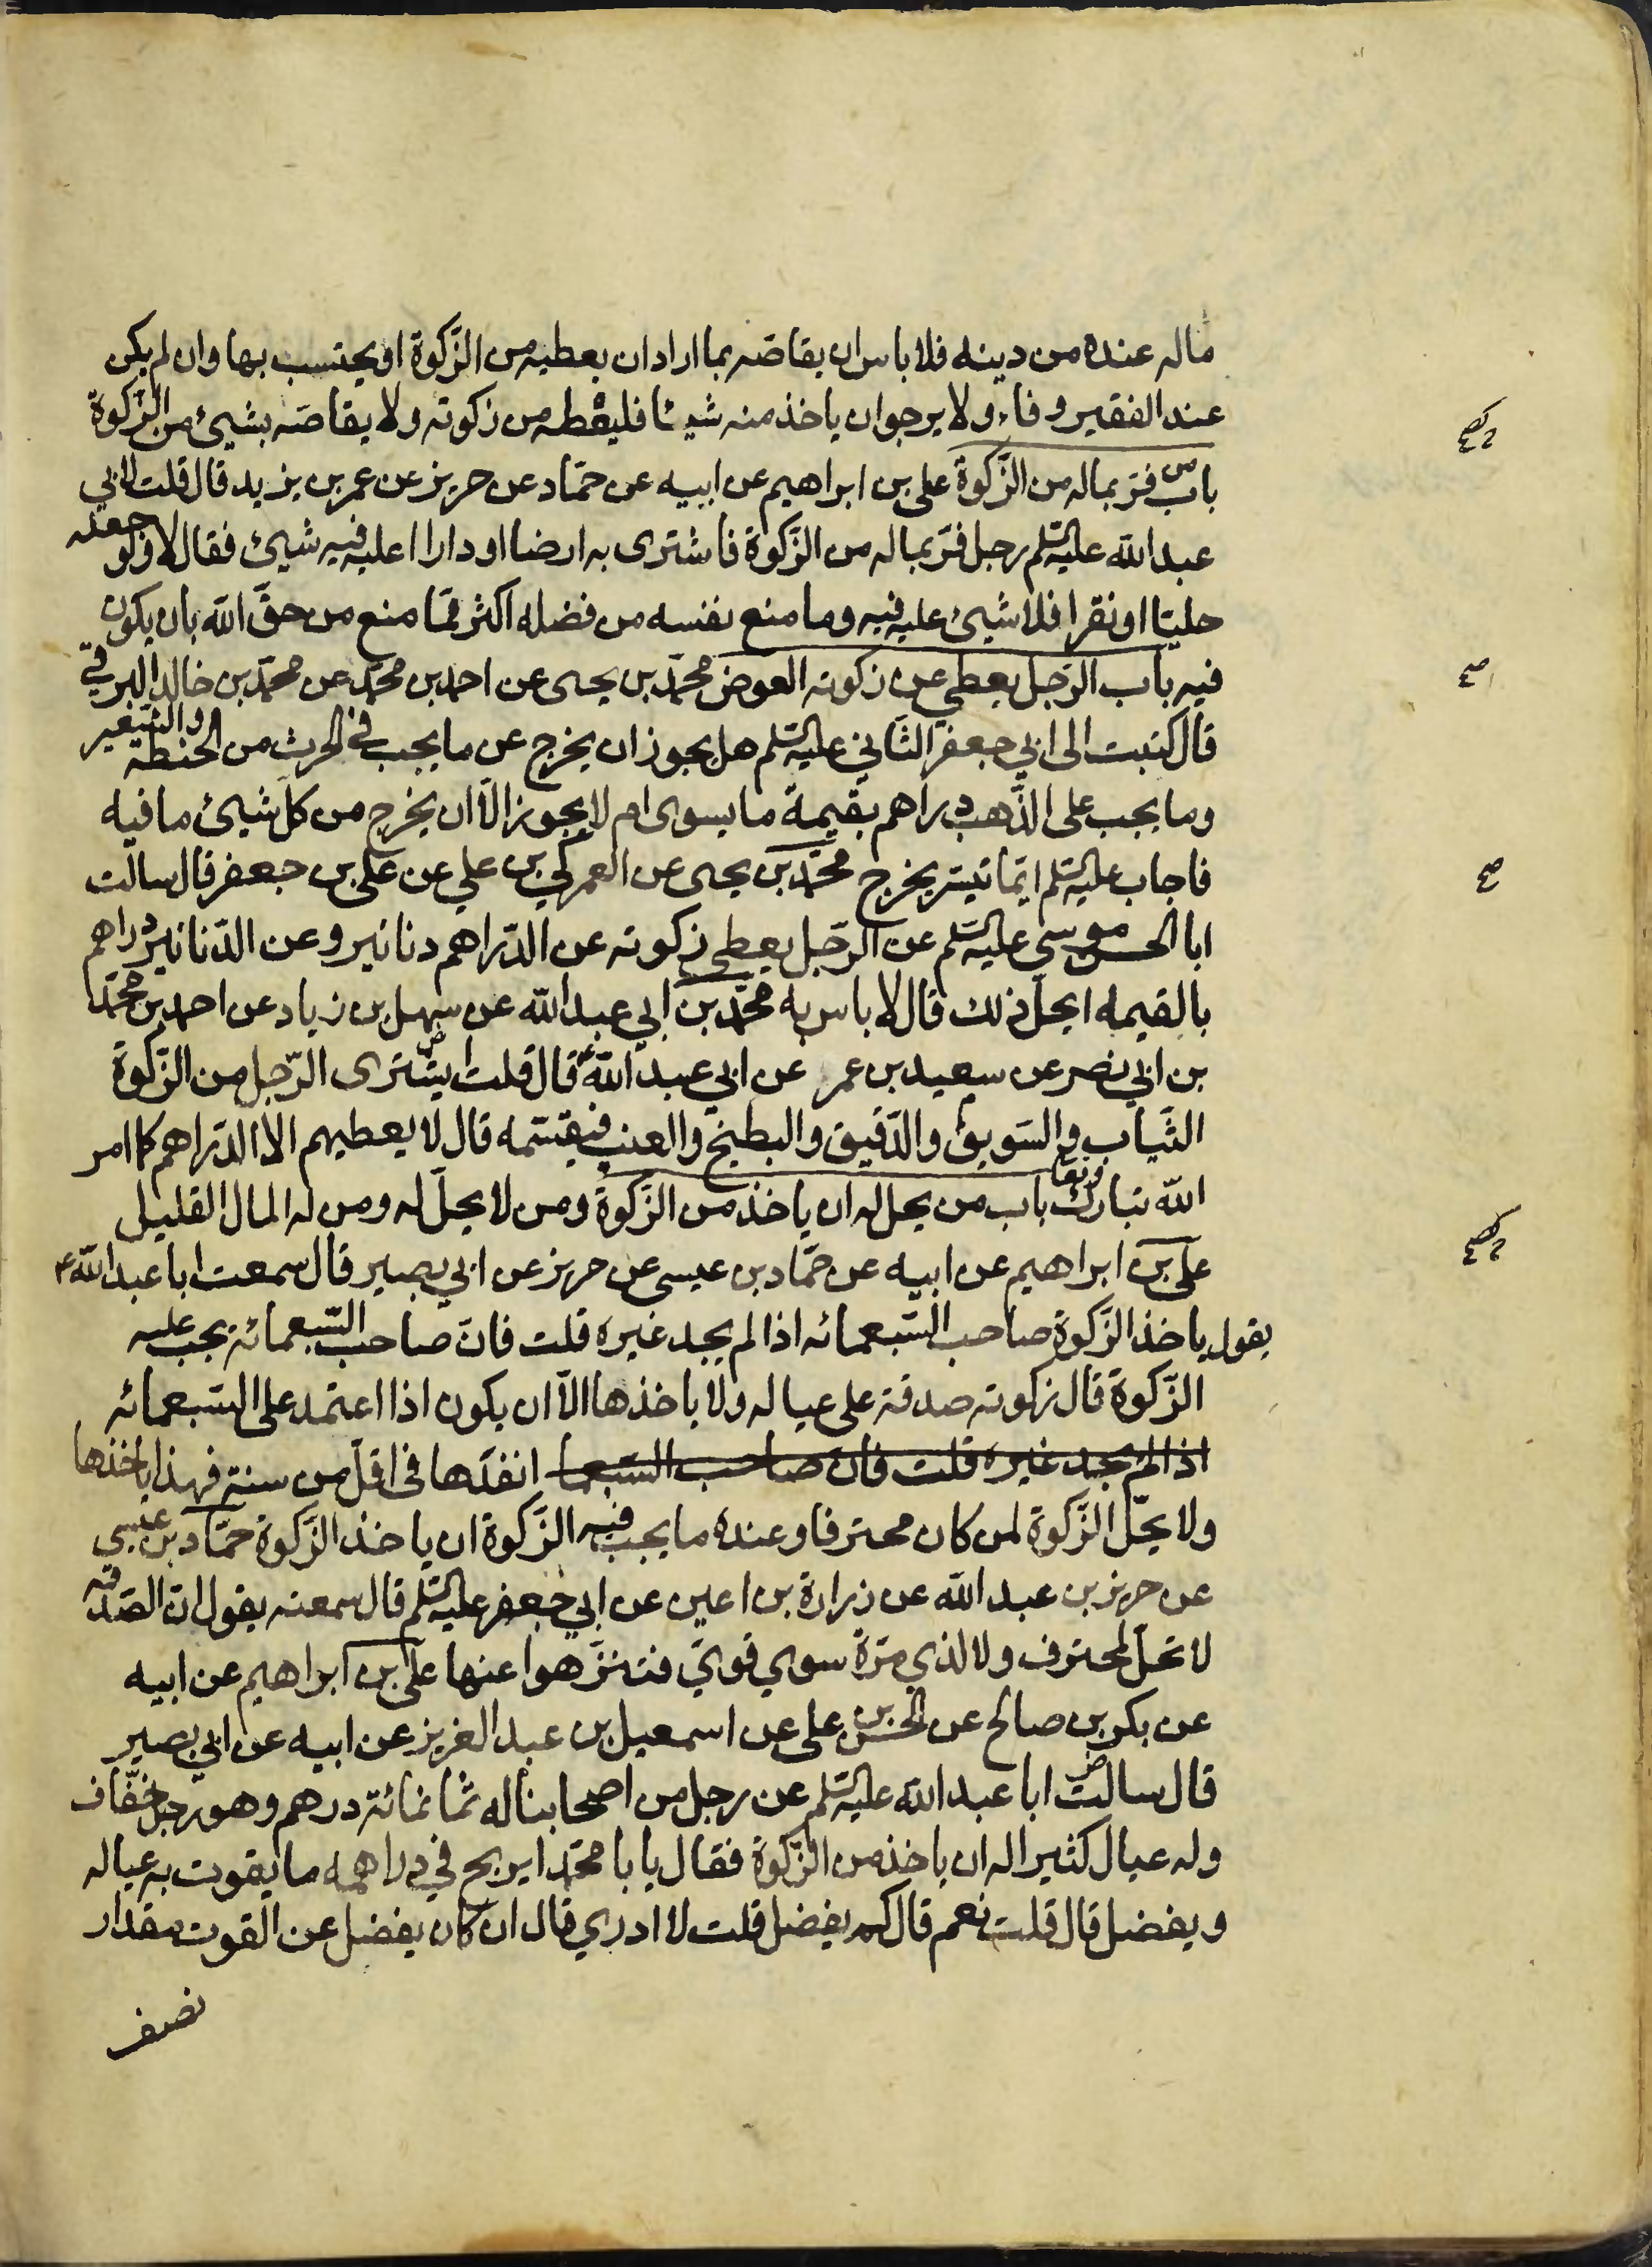 ماله عنده من دينه فلا باس ان يقاصّه بما اراد ان يعطيه من الزّكوة او يحتسب بها وان لم يكن
عند الفقير وفاء ولا يرجو ان ياخذ منه شيئا فليعطه من زكوته ولا يقاصّه بشيئ من الزّكوة
باب من فرّ بماله من الزّكوة علي بن ابراهيم عن ابيه عن حمّاد عن حريز عن عمر بن يزيد قال قلت لابي
عبد الله عليه السّلم رجل فرّ بماله من الزّكوة فاشترى به ارضا او دارا اعليه فيه شيئ فقال لا ولو جعله
حليّا او نقرا فلا شيئ عليه فيه وما منع نفسه من فضله اكثر ممّا منع من حقّ الله بان يكون
فيه باب الرّجل يعطي عن زكوته العوض محمّد بن يحيى عن احمد بن محمّد عن محمّد بن خالد البرقيّ
قال كتبت الى ابي جعفر الثّاني عليه السّلم هل يجوز ان يخرج عن ما يجب في الحرث من الحنطة والشّعير
وما يجب على الذّهب دراهم بقيمة ما يسوى ام لا يجوز الّا ان يخرج من كلّ شيئ ما فيه
فاجاب عليه السّلم ايّما تيسّر يخرج محمّد بن يحيى عن العمركي بن علي عن علي بن جعفر قال سالت
ابا الحسن موسى عليه السّلم عن الرّجل يعطي زكوته عن الدّراهم دنانير وعن الدّنانير دراهم
بالقيمه ايحلّ ذلك قال لا باس به محمّد بن ابي عبد الله عن سهل بن زياد عن احمد بن محمّد
بن ابي نصر عن سعيد بن عمر عن ابي عبد اللهع قال قلت ايشترى الرّجل من الزّكوة
الثّياب والسّويق والدّقيق والبطيخ والعنب فيقسّمه قال لا يعطيهم الا الدّراهم كما امر
الله تبارك وتعا باب من يحل له ان ياخذ من الزّكوة ومن لا يحلّ له ومن له المال القليل
علي بن ابراهيم عن ابيه عن حمّاد بن عيسى عن حريز عن ابي بصير قال سمعت ابا عبد اللهع
يقول ياخذ الزّكوة صاحب السّبعمائه اذا لم يجد غيره قلت فانّ صاحب السّبعمائة يجب عليه
الزّكوة قال زكوته صدقة على عياله ولا ياخذها الّا ان يكون اذا اعتمد على السّبعمائه
اذا لم يجد غيره قلت فان صاحب السّبعما انفدها في اقلّ من سنة فهذا ياخذها
ولا يحلّ الزّكوة لمن كان محترفا وعنده ما يجب فيه الزّكوة ان ياخذ الزّكوة حمّاد بن عيسى
عن حريز بن عبد الله عن زرارة بن اعين عن ابي جعفر عليه السّلم قال سمعته يقول انّ الصّدقه
لا تحلّ لمحترف ولا لذي مرّة سوي قويّ فتنزّهوا عنها علي بن ابراهيم عن ابيه
عن بكر بن صالح عن الحسن بن علي عن اسمعيل بن عبد العزيز عن ابيه عن ابي بصير
قال سالت ابا عبد الله عليه السّلم عن رجل من اصحابنا له ثمانمائة درهم وهو رجل خفّاف
وله عيال كثير اله ان ياخذ من الزّكوة فقال يا با محمّد ايربح في دراهمه ما يقوت به عياله
ويفضل قال قلت نعم قال كم يفضل قلت لا ادري قال ان كان يفضل عن القوت مقدار
نصف